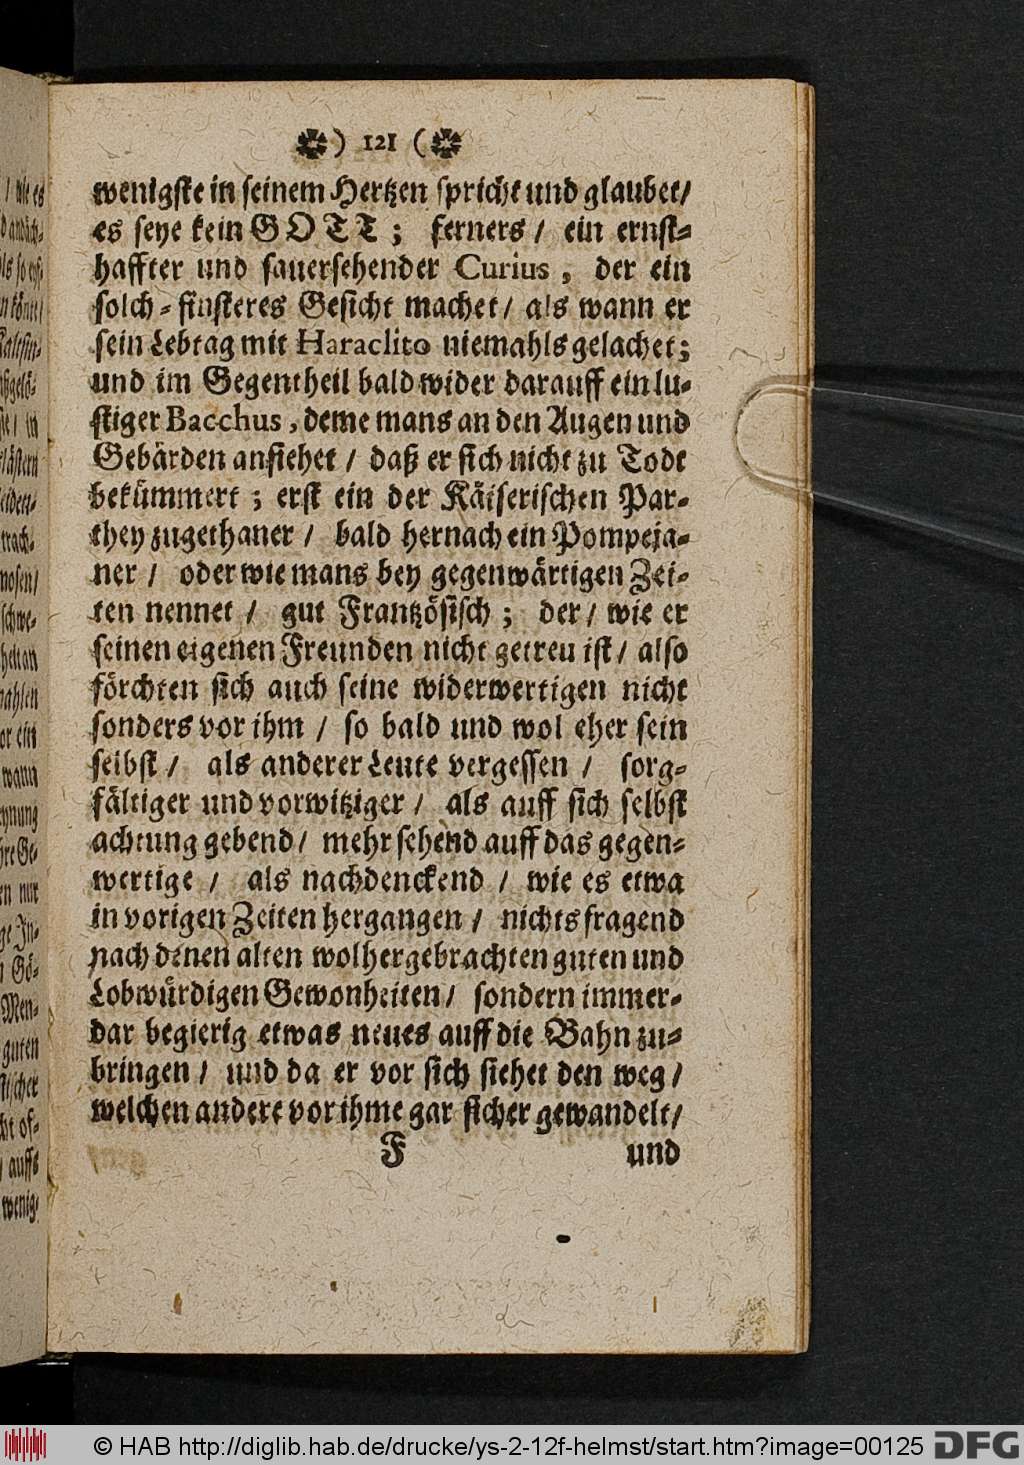 ❁) 121 (❁
wenigste in seinem Hertzen spricht und glaubet/
es seye kein GOTT; ferners / ein ernst-
haffter und sauersehender Curius, der ein
solch-finsteres Gesicht machet / als wann er
sein Lebtag mit Haraclito niemahls gelachet;
und im Gegentheil bald wider darauff ein lu-
stiger Bacchus, deme mans an den Augen und
Gebärden ansiehet / daß er sich nicht zu Todt
bekümmert; erst ein der Käiserischen Par-
they zugethaner / bald hernach ein Pompeja-
ner / oder wie mans bey gegenwärtigen Zei-
ten nennet / gut Frantzösisch; der / wie er
seinen eigenen Freunden nicht getreu ist / also
förchten sich auch seine widerwertigen nicht
sonders vor ihm / so bald und wol eher sein
selbst / als anderer Leute vergessen / sorg-
fältiger und vorwitziger / als auff sich selbst
achtung gebend / mehr sehend auff das gegen-
wertige / als nachdenckend / wie es etwa
in vorigen Zeiten hergangen / nichts fragend
nach denen alten wolhergebrachten guten und
Lobwürdigen Gewonheiten / sondern immer-
dar begierig etwas neues auff die Bahn zu-
bringen / und da er vor sich siehet den weg /
welchen andere vor ihme gar sicher gewandelt /
F und
© HAB http://diglib.hab.de/drucke/ys-2-12f-helmst/start.htm?image=00125 DFG